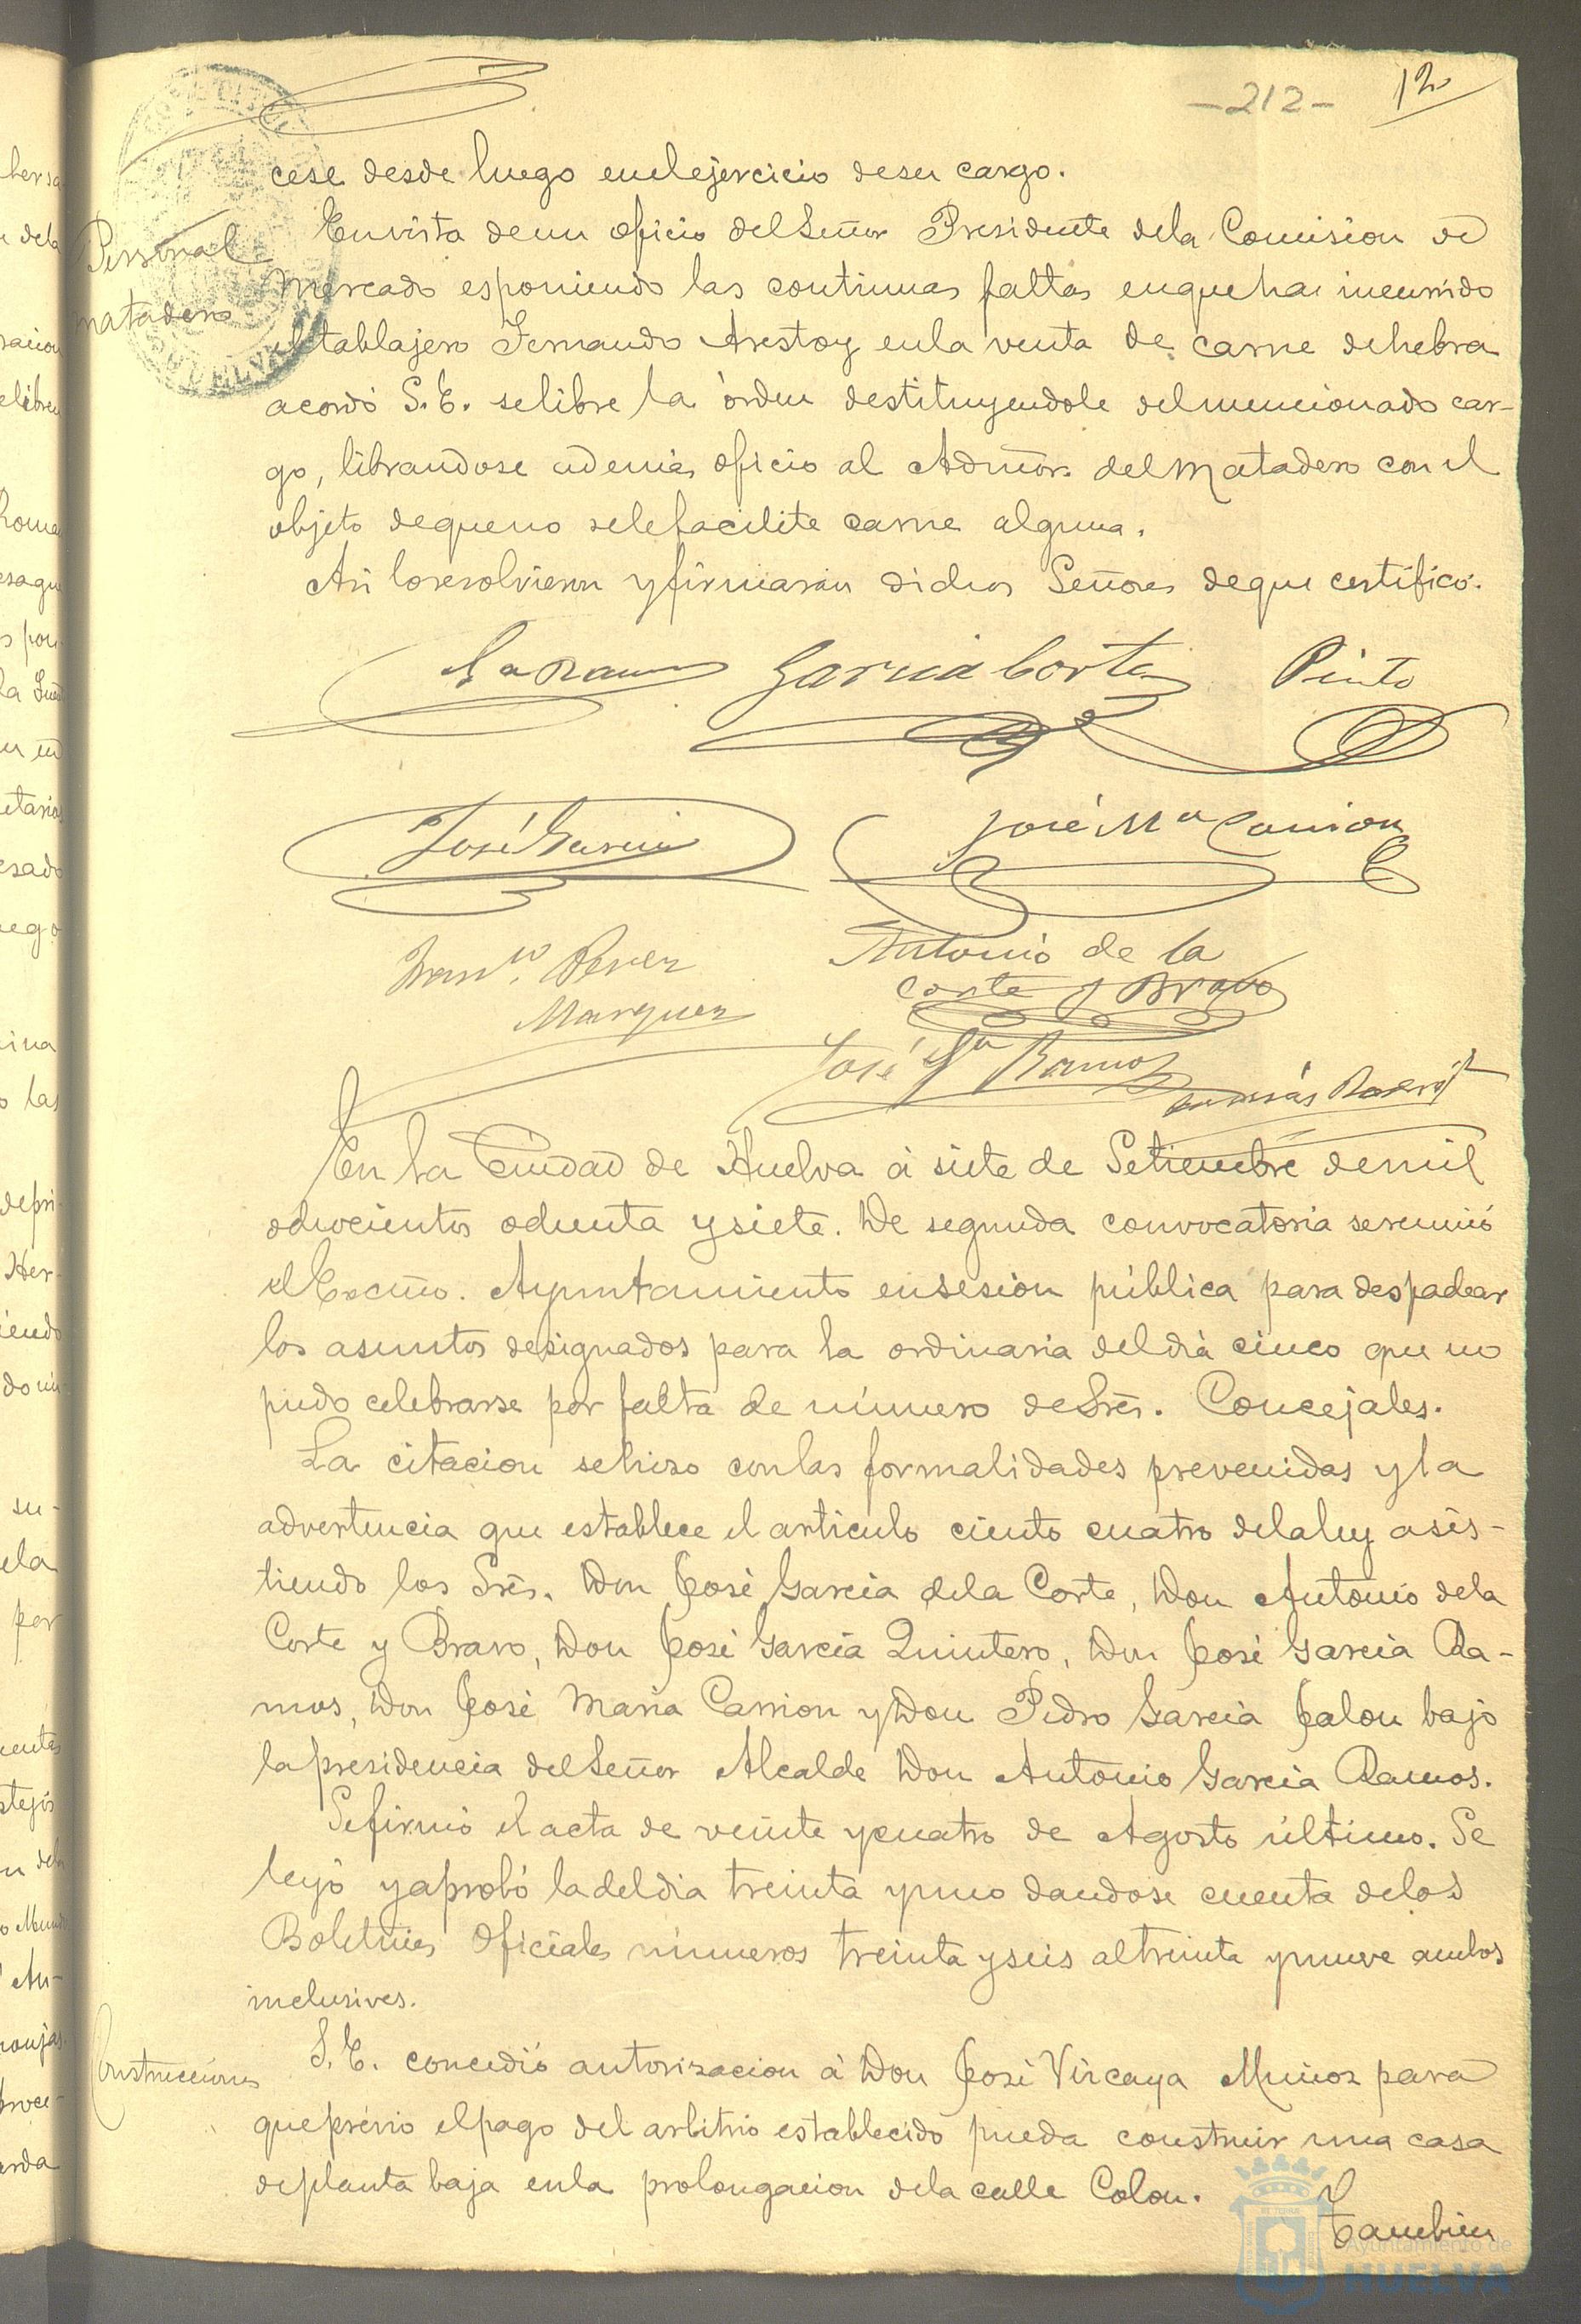 -212- 12
cese desde luego en el ejercicio de su cargo.
Personal
matadero
En vista de un oficio del Señor Presidente de la Comision de
Mercado esponiendo las continuas faltas en que ha incurrido
el tablajero Fernando Arestoy en la venta de carne de hebra
acordó S.E. se libre la órden destituyendole del mencionado car-
go, librandose además oficio al Admor. del Matadero con el
objeto de que no se le facilite carne alguna.
Asi lo resolvieron y firmarán dichos Señores de que certifico.
Ga Ramos Garcia Corte Pinto
José Garcia José Mª Carrion
Franco. Perez
Marquez
Antonio de la
Corte y Bravo
José Ga Ramos
En la Ciudad de Huelva á siete de Setiembre de mil
ochocientos ochenta y siete. De segunda convocatoria se reunió
el Excmo. Ayuntamiento en sesion pública para despachar
los asuntos designados para la ordinaria del dia cinco que no
pudo celebrarse por falta de número de Sres. Concejales.
La citacion se hizo con las formalidades prevenidas y la
advertencia que establece el articulo ciento cuatro de la ley asis-
tiendo los Sres. Don José Garcia de la Corte, Don Antonio de la
Corte y Bravo, Don José Garcia Quintero, Don José Garcia Ra-
mos, Don José Maria Carrion y Don Pedro Garcia Jalon bajo
la presidencia del Señor Alcalde Don Antonio Garcia Ramos.
Se firmó el acta de veinte y cuatro de Agosto último. Se
leyó y aprobó la del dia treinta y uno dandose cuenta de los
Boletines Oficiales números treinta y seis al treinta y nueve ambos
inclusives.
Construcciones
S.E. concedió autorizacion á Don José Vizcaya Muñoz para
que prévio el pago del arbitrio establecido pueda construir una casa
de planta baja en la prolongacion de la calle Colon.
Tambien
Ayuntamiento de
HUELVA